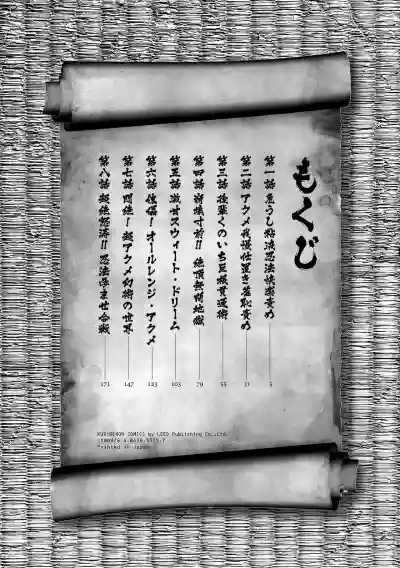 もくじ
第一話 危うし粘液忍法快楽責め 5
第二話 アクメ我慢仕置き羞恥責め 31
第三話 後輩くのいち豆核貫通術 55
第四話 崩壊寸前!! 絶頂無間地獄 79
第五話 激甘スウィート・ドリーム 103
第六話 住偏! オールレンジ・アクメ 123
第七話 悶絶! 超アクメ幻術の世界 147
第八話 超絶怒涛!! 忍法孕ませ合戦 171
by LEED Publishing Co.,Ltd.
Printed in Japan